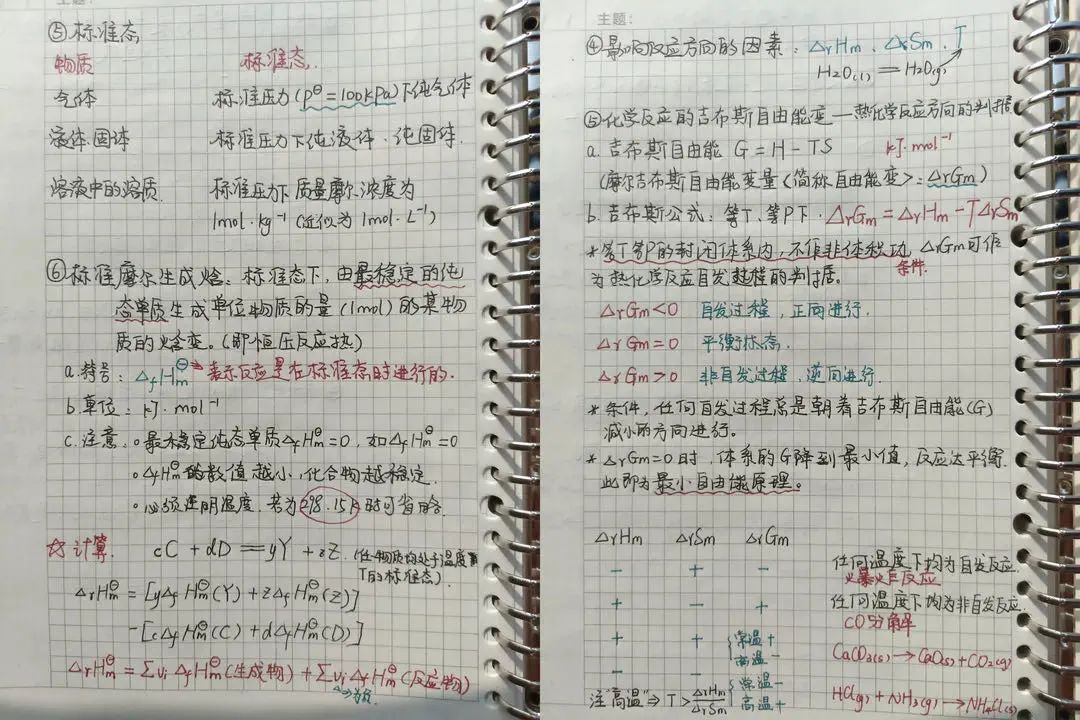 ⑤标准态
物质 标准态.
气体 标准压力(p^⊖=100kPa)下纯气体
液体.固体 标准压力下纯液体.纯固体.
溶液中的溶质. 标准压力下质量摩尔浓度为
1mol·kg⁻¹(近似为1mol·L⁻¹)
⑥标准摩尔生成焓:标准态下,由最稳定的纯
态单质生成单位物质的量(1mol)的某物
质的焓变。(即恒压反应热)
a.符号:ΔfHm^⊖→表示反应是在标准态时进行的.
b.单位:kJ·mol⁻¹
c.注意.◦最稳定纯态单质ΔfHm^⊖=0,如ΔfHm^⊖=0
◦ΔfHm^⊖的数值越小,化合物越稳定.
◦必须注明温度.若为298.15K时可省略.
☆计算. cC+dD══yY+zZ.(任一物质均处于温度
T的标准态)
ΔrHm^⊖=[yΔfHm^⊖(Y)+zΔfHm^⊖(Z)]
-[cΔfHm^⊖(C)+dΔfHm^⊖(D)]
ΔrHm^⊖=∑νiΔfHm^⊖(生成物)+∑νiΔfHm^⊖(反应物)
→为负
主题:
④影响反应方向的因素:ΔrHm.ΔrSm.T
H2O(l)══H2O(g)
⑤化学反应的吉布斯自由能变—热化学反应方向的判据
a.吉布斯自由能 G=H-TS kJ·mol⁻¹
(摩尔吉布斯自由能变量<简称自由能变>:ΔrGm)
b.吉布斯公式:等T、等P下.ΔrGm=ΔrHm-TΔrSm
*等T等P的封闭体系内,不作非体积功,ΔrGm可作
条件.
为热化学反应自发过程的判据。
ΔrGm<0 自发过程,正向进行.
ΔrGm=0 平衡状态.
ΔrGm>0 非自发过程,逆向进行.
*条件,任何自发过程总是朝着吉布斯自由能(G)
减小的方向进行。
*ΔrGm=0时,体系的G降到最小值,反应达平衡.
此即为最小自由能原理。
ΔrHm ΔrSm ΔrGm
- + - 任何温度下均为自发反应.
火暴炸反应
+ - + 任何温度下均为非自发反应.
CO分解
+ + {常温+ 高温- CaCO3(s)→CaO(s)+CO2(g)
- - {常温- 高温+ HCl(g)+NH3(g)→NH4Cl(s)
注"高温"⇒T>ΔrHm/ΔrSm